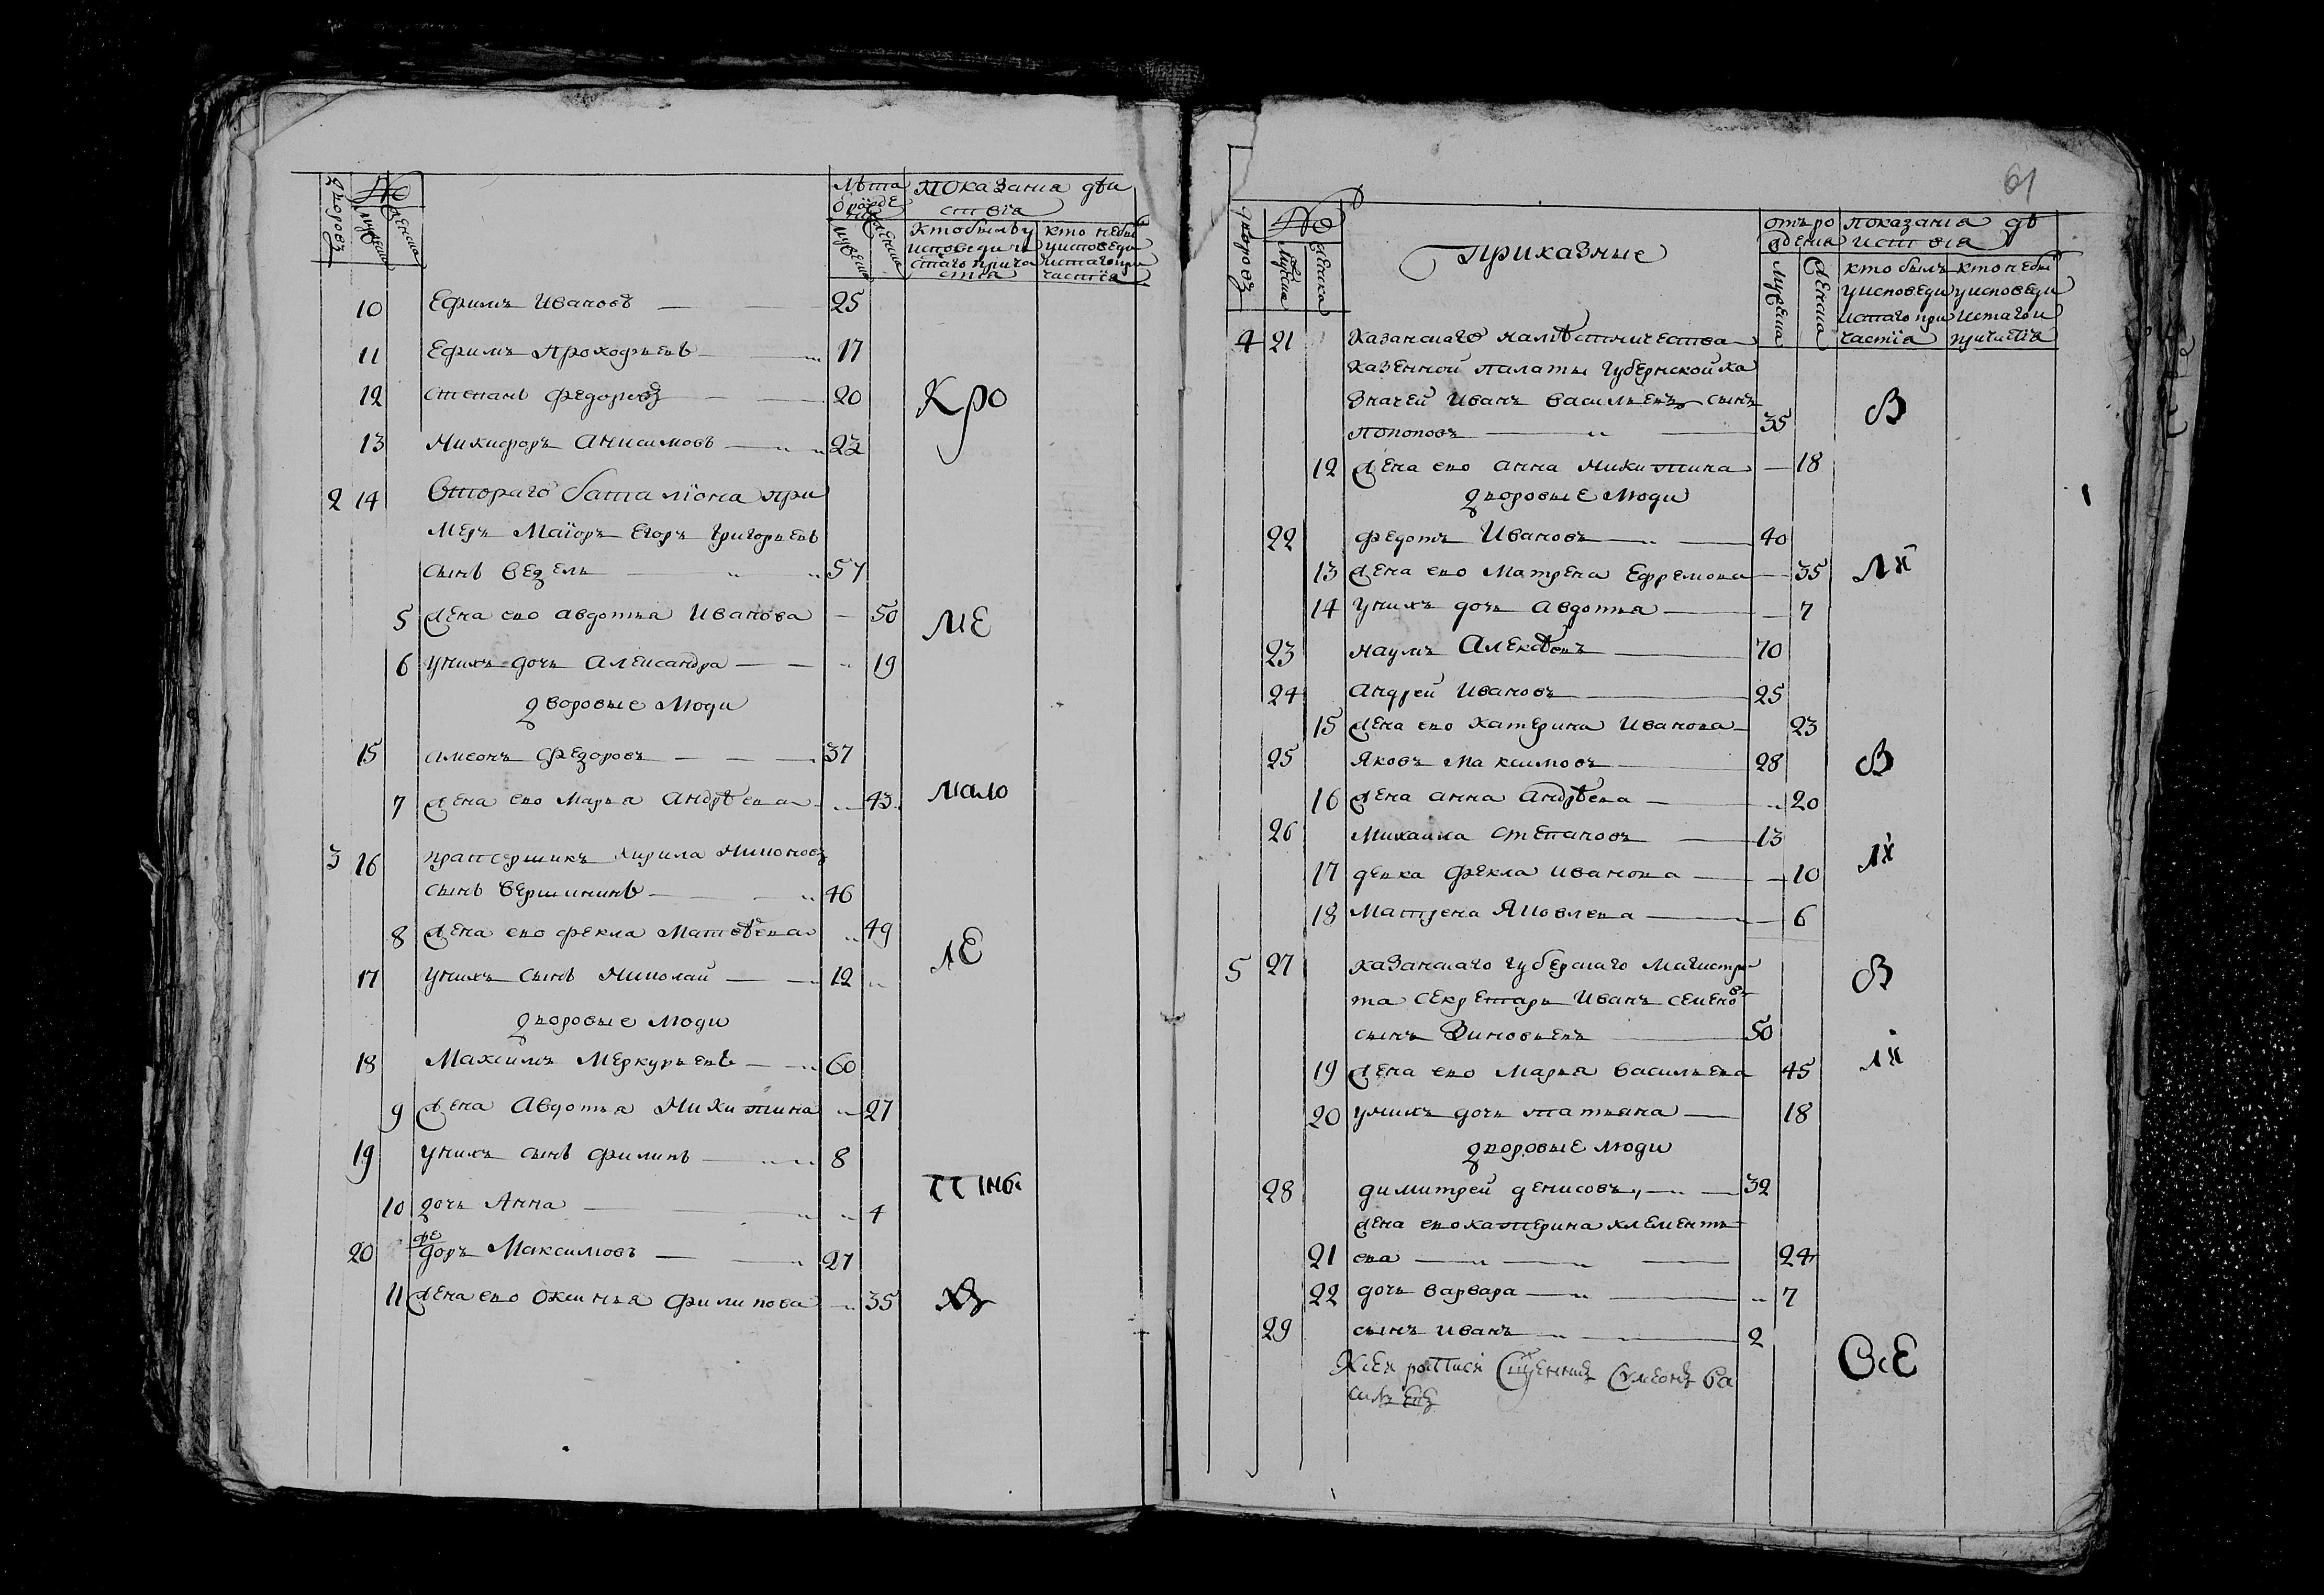 №
дворовъ
мужеска
женска
Лѣта
ѿ рожде
нія
мужеска
женска
показанія дѣи
ствія
Кто былъ у
исповеди и
стаго прича
стія
кто небы
у исповеди
и стаго при
частія
10 Ефимъ Ивановъ 25
11 Ефимъ Прокофьевъ 17
12 степанъ Федоровъ 20
Кро
13 Никифоръ Анисимовъ 23
2 14 Втораго баталіона при
меръ Маіоръ Егоръ Григорьевъ
сынъ Везель 57
5 жена ево авдотья Иванова 50
ме
6 унихъ дочь Александра 19
дворовые люди
15 симеонъ Федоровъ 37
7 жена ево марья Андрѣева 43
мало
3 16 прапорщикъ кирила Миноновъ
сынъ Вершининъ 46
8 жена ево фекла Матвѣева 49
ле
17 унихъ сынъ Николаи 12
дворовые люди
18 Максимъ Меркурьевъ 60
9 жена Авдотья Никитина 27
19 унихъ сынъ филипъ 8
10 дочь Анна 4
20 фе
доръ Максимовъ 27
11 жена ево Оксинья Филипова 35
61
№
дворовъ
мужска
женска
приказные
отъ ро
жденія
мужеска
женска
показанія дѣ
иствія
кто былъ
у исповеди
и стаго при
частія
кто небы
у исповеди
и стаго
причастія
4 21 Казанскаго намѣстничества
казенной палаты Губернской ка
значей Иванъ Васильевъ сынъ
Попоповъ 35
В
12 жена ево анна Никитина 18
дворовые люди
22 федотъ Ивановъ 40
13 жена ево Матрена Ефремова 35
14 унихъ дочь авдотья 7
23 наумъ Алексѣевъ 70
24 Андрей Ивановъ 25
15 жена ево катерина Иванова 23
25 Яковъ Максимовъ 28
В
16 жена анна Андрѣева 20
26 Михаила степановъ 13
17 девка фекла иванова 10
18 Матрена Яковлева 6
5 27 казанскаго губерскаго Магистра
та секретарь Иванъ семеновъ
сынъ Зиновьевъ 50
В
19 жена ево марья васильева 45
20 унихъ дочь татьяна 18
дворовые люди
28 димитрей денисовъ 32
жена ево катерина клементь
21 ева 24
22 дочь варвара 7
29 сынъ иванъ 2
Все
К сей росписи Сщенникъ Сумеонъ Ва
сильевъ